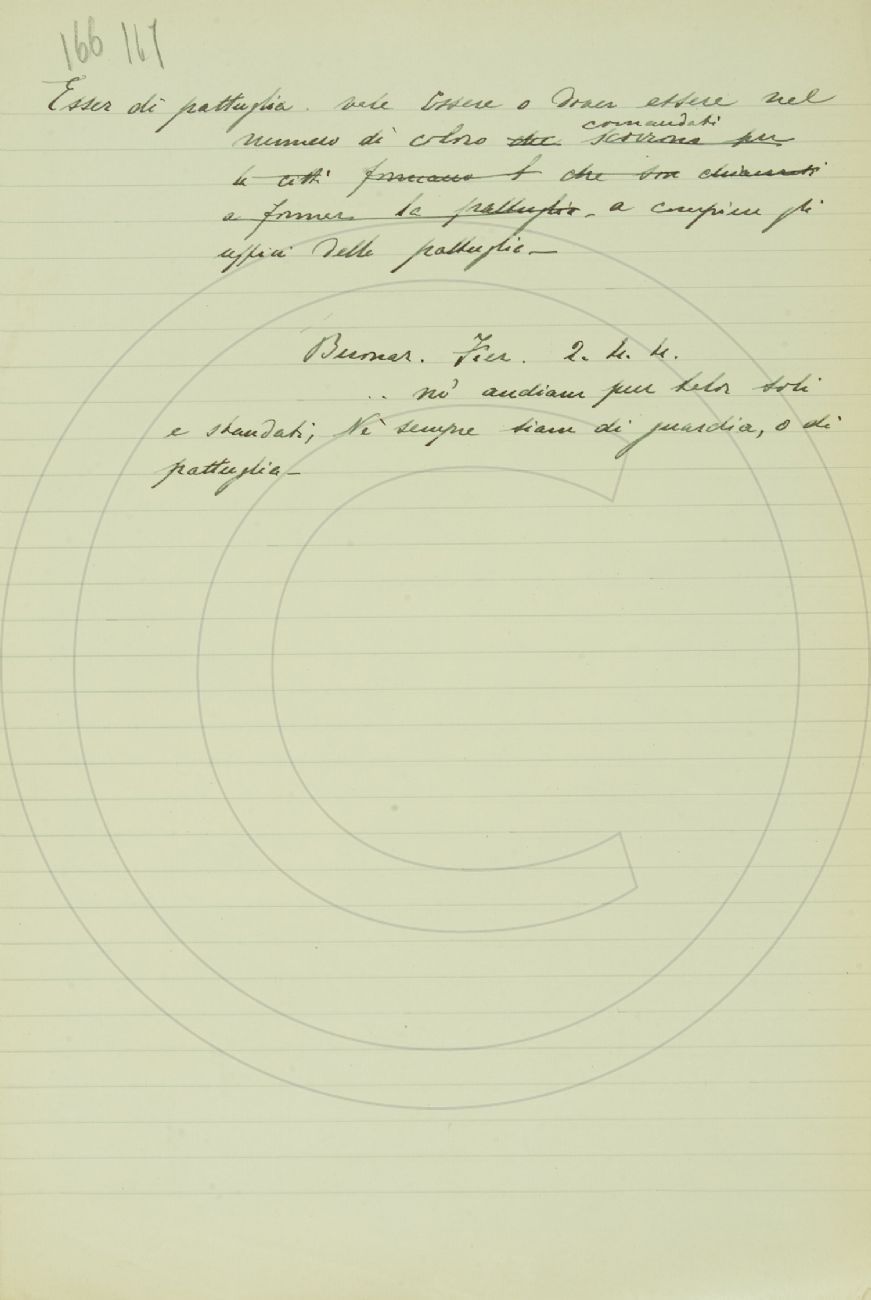 166 167
Esser di pattuglia. vale Essere o Dover essere nel
comandati
numero di coloro che scorrono per
la città formano che son chiamati
a formar la pattuglia - a compiere gli
uffici della pattuglia —
Buonar. Fier. 2. 4. 4.
.. nò andiam pur soli
e sbandati; Nè sempre siam di guardia, o di
pattuglia —